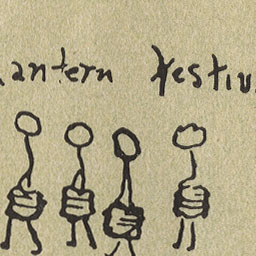 Lantern Festiv